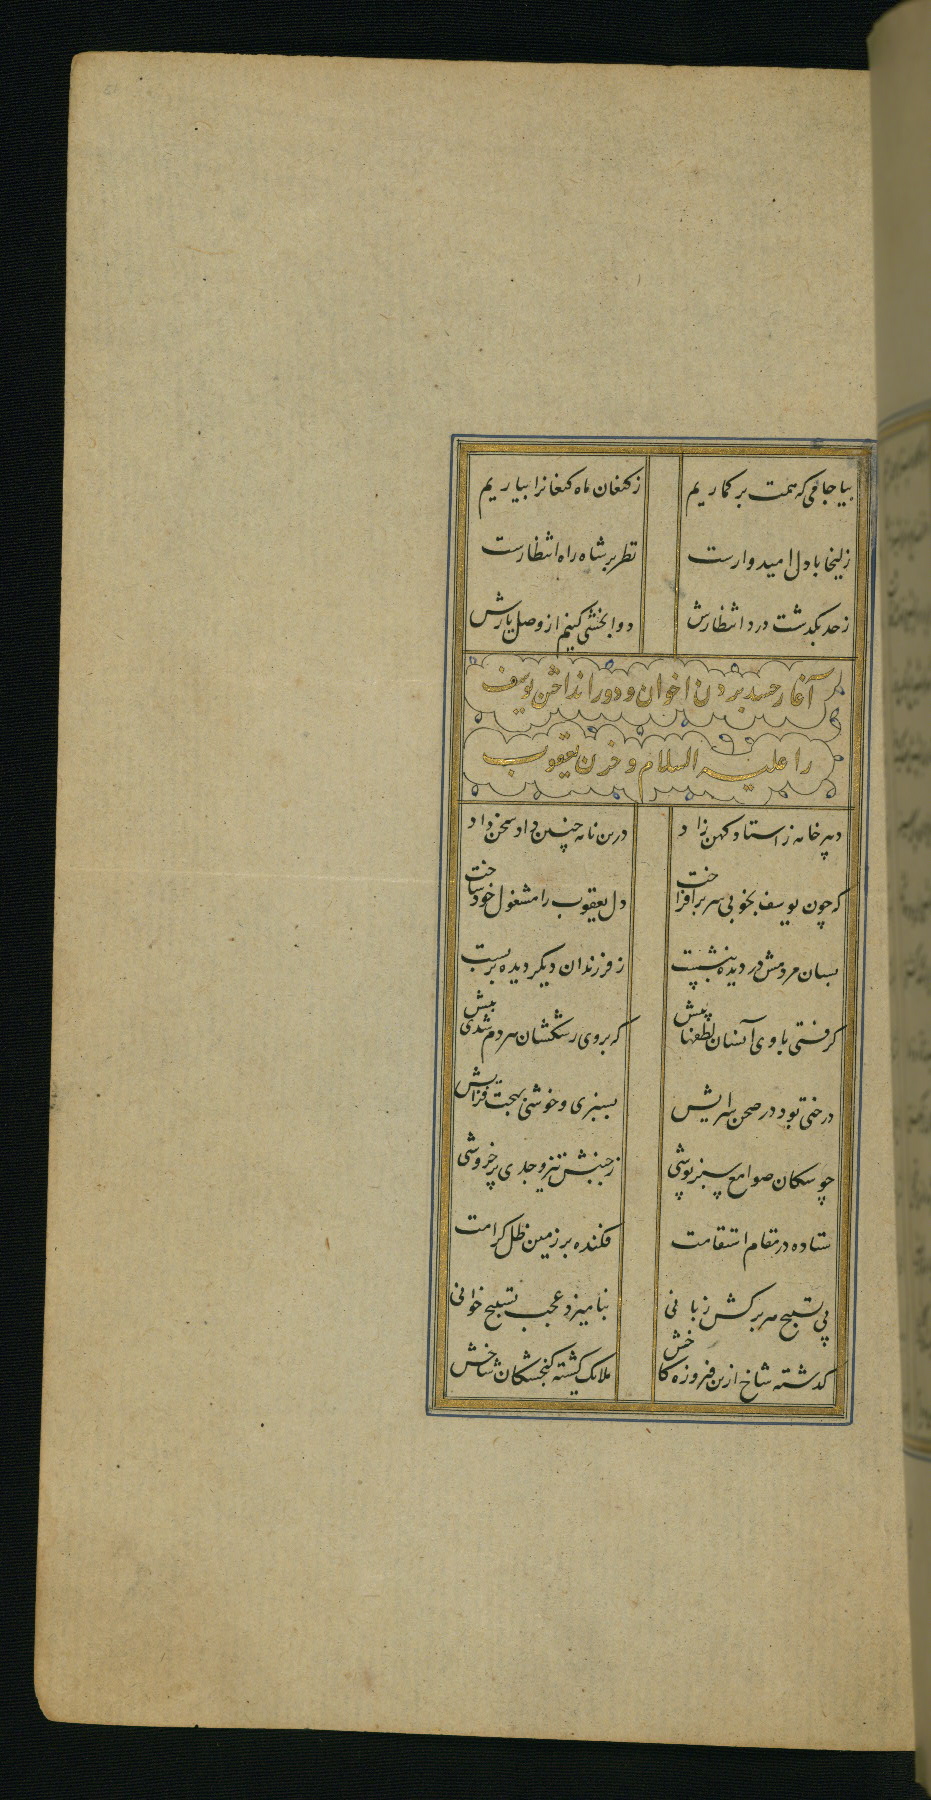 بیا جامی که همت بر کماریم	ز کنعان ماه کنعانرا بیاریم
زلیخا با دل امیدوارست	نظر بر شاه راه انتظارست
ز حد بگذشت درد انتظارش	دوا بخشی کنیم از وصل یارش
آغاز حسد بردن اخوان و دور انداختن یوسف
را علیه السلام و حزن یعقوب
دبیر خامه ز استاد کهن زاد	درین نامه چنین داد سخن داد
که چون یوسف بخوبی سر برافراخت	دل یعقوب را مشغول خود ساخت
بسان مردمش در دیده بنشست	ز فرزندان دیگر دیده بربست
گرفتی با وی آنسان لطفها پیش	که بر وی رشکشان هر دم شدی بیش
درختی بود در صحن سرایش	بسبزی و خوشی بهجت فزایش
چو سکان صوامع سبزپوشی	ز جنبش تیز وجدی پرخروشی
ستاده در مقام استقامت	فکنده بر زمین ظل کرامت
پی تسبیح هر برگش زبانی	بنامیزد عجب تسبیح خوانی
گذشته شاخ ازین فیروزه کاخش	ملائک گشته گنجشکان شاخش